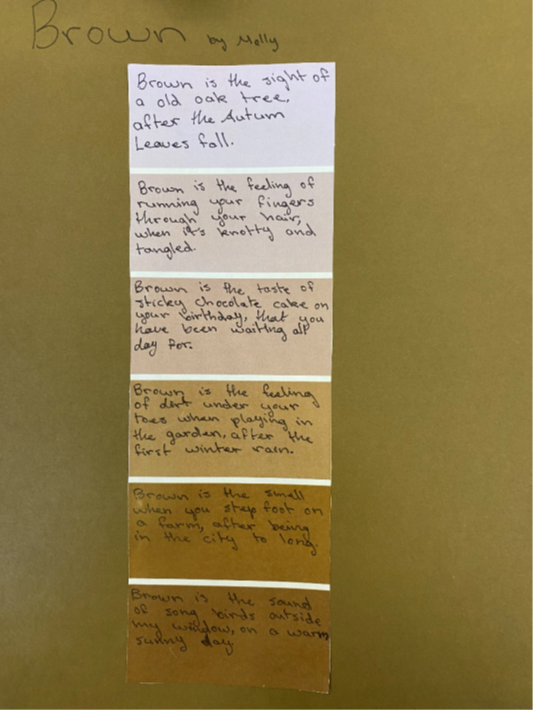 Brown by Molly
Brown is the sight of
a old oak tree,
after the Autum
Leaves fall.
Brown is the feeling of
running your fingers
through your hair,
when it's knotty and
tangled.
Brown is the taste of
sticky chocolate cake on
your birthday, that you
have been waiting all
day for.
Brown is the feeling
of dirt under your
toes when playing in
the garden, after the
first winter rain.
Brown is the smell
when you step foot on
a farm, after being
in the city to long.
Brown is the sound
of song birds outside
my window, on a warm
sunny day